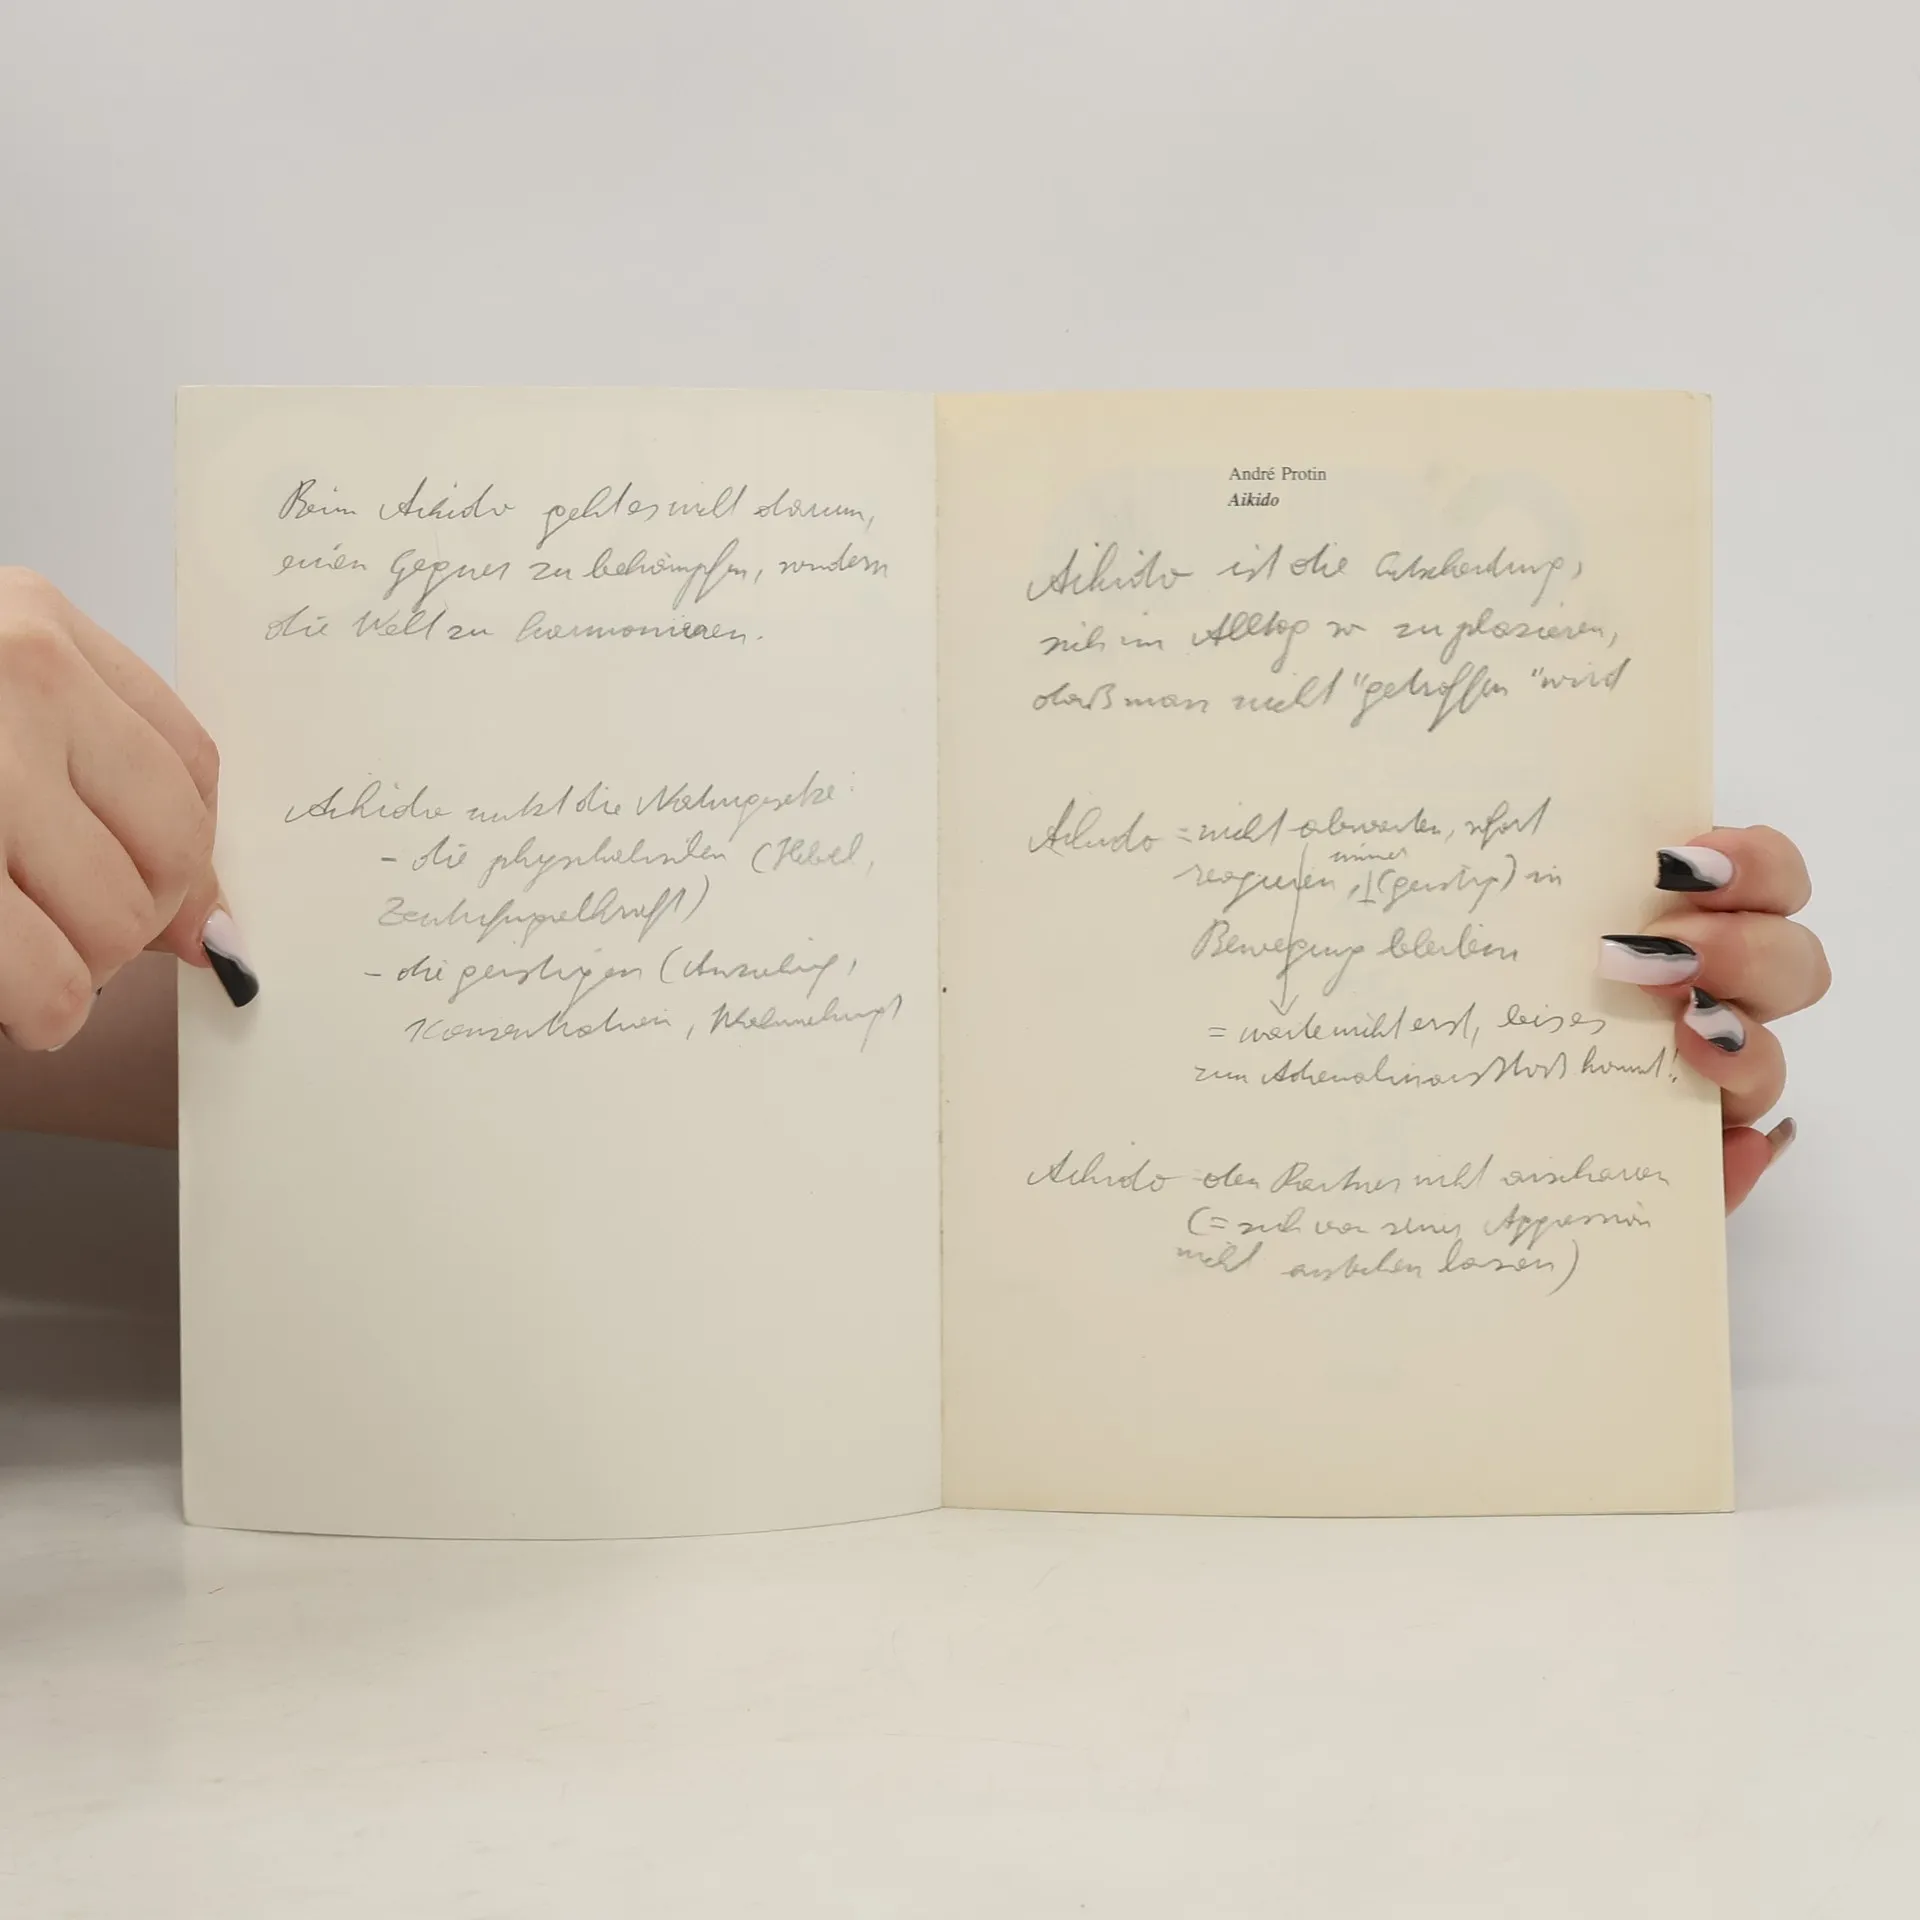 Beim Aikido geht es nicht darum,
einen Gegner zu bekämpfen, sondern
die Welt zu harmonisieren.
Aikido nutzt die Naturgesetze:
- die physikalischen (Hebel,
Zentrifugalkraft)
- die geistigen (Anziehung,
Konzentration, Wahrnehmung)
André Protin
Aikido
Aikido ist die Entscheidung,
sich im Alltag so zu plazieren,
daß man nicht "getroffen" wird
Aikido = nicht abwarten, sofort
immer
reagieren, (geistig) in
Bewegung bleiben
= warte nicht erst, bis es
zum Adrenalinausstoß kommt!
Aikido den Partner nicht anschauen
(= sich von seiner Aggression
nicht anstecken lassen)